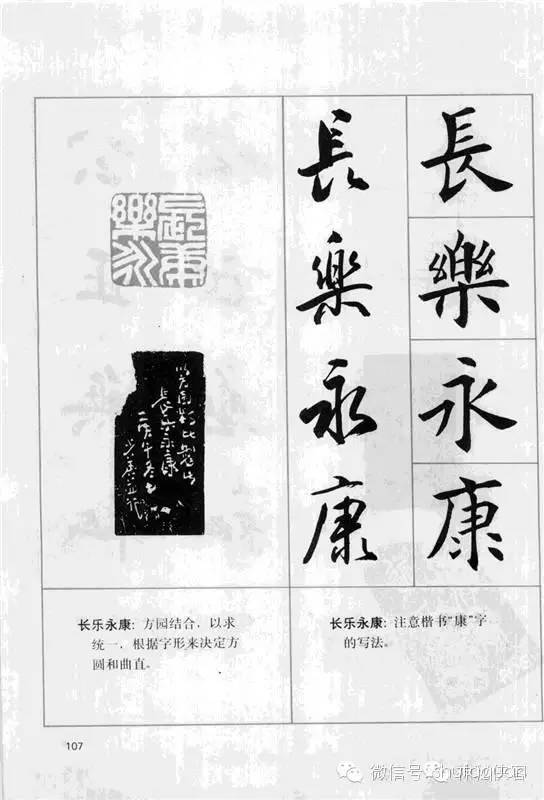 長樂永康
長樂永康
長樂永康
長乐永康
长乐永康: 方园结合，以求
统一，根据字形来决定方
圆和曲直。
长乐永康: 注意楷书“康”字
的写法。
107
微信号: